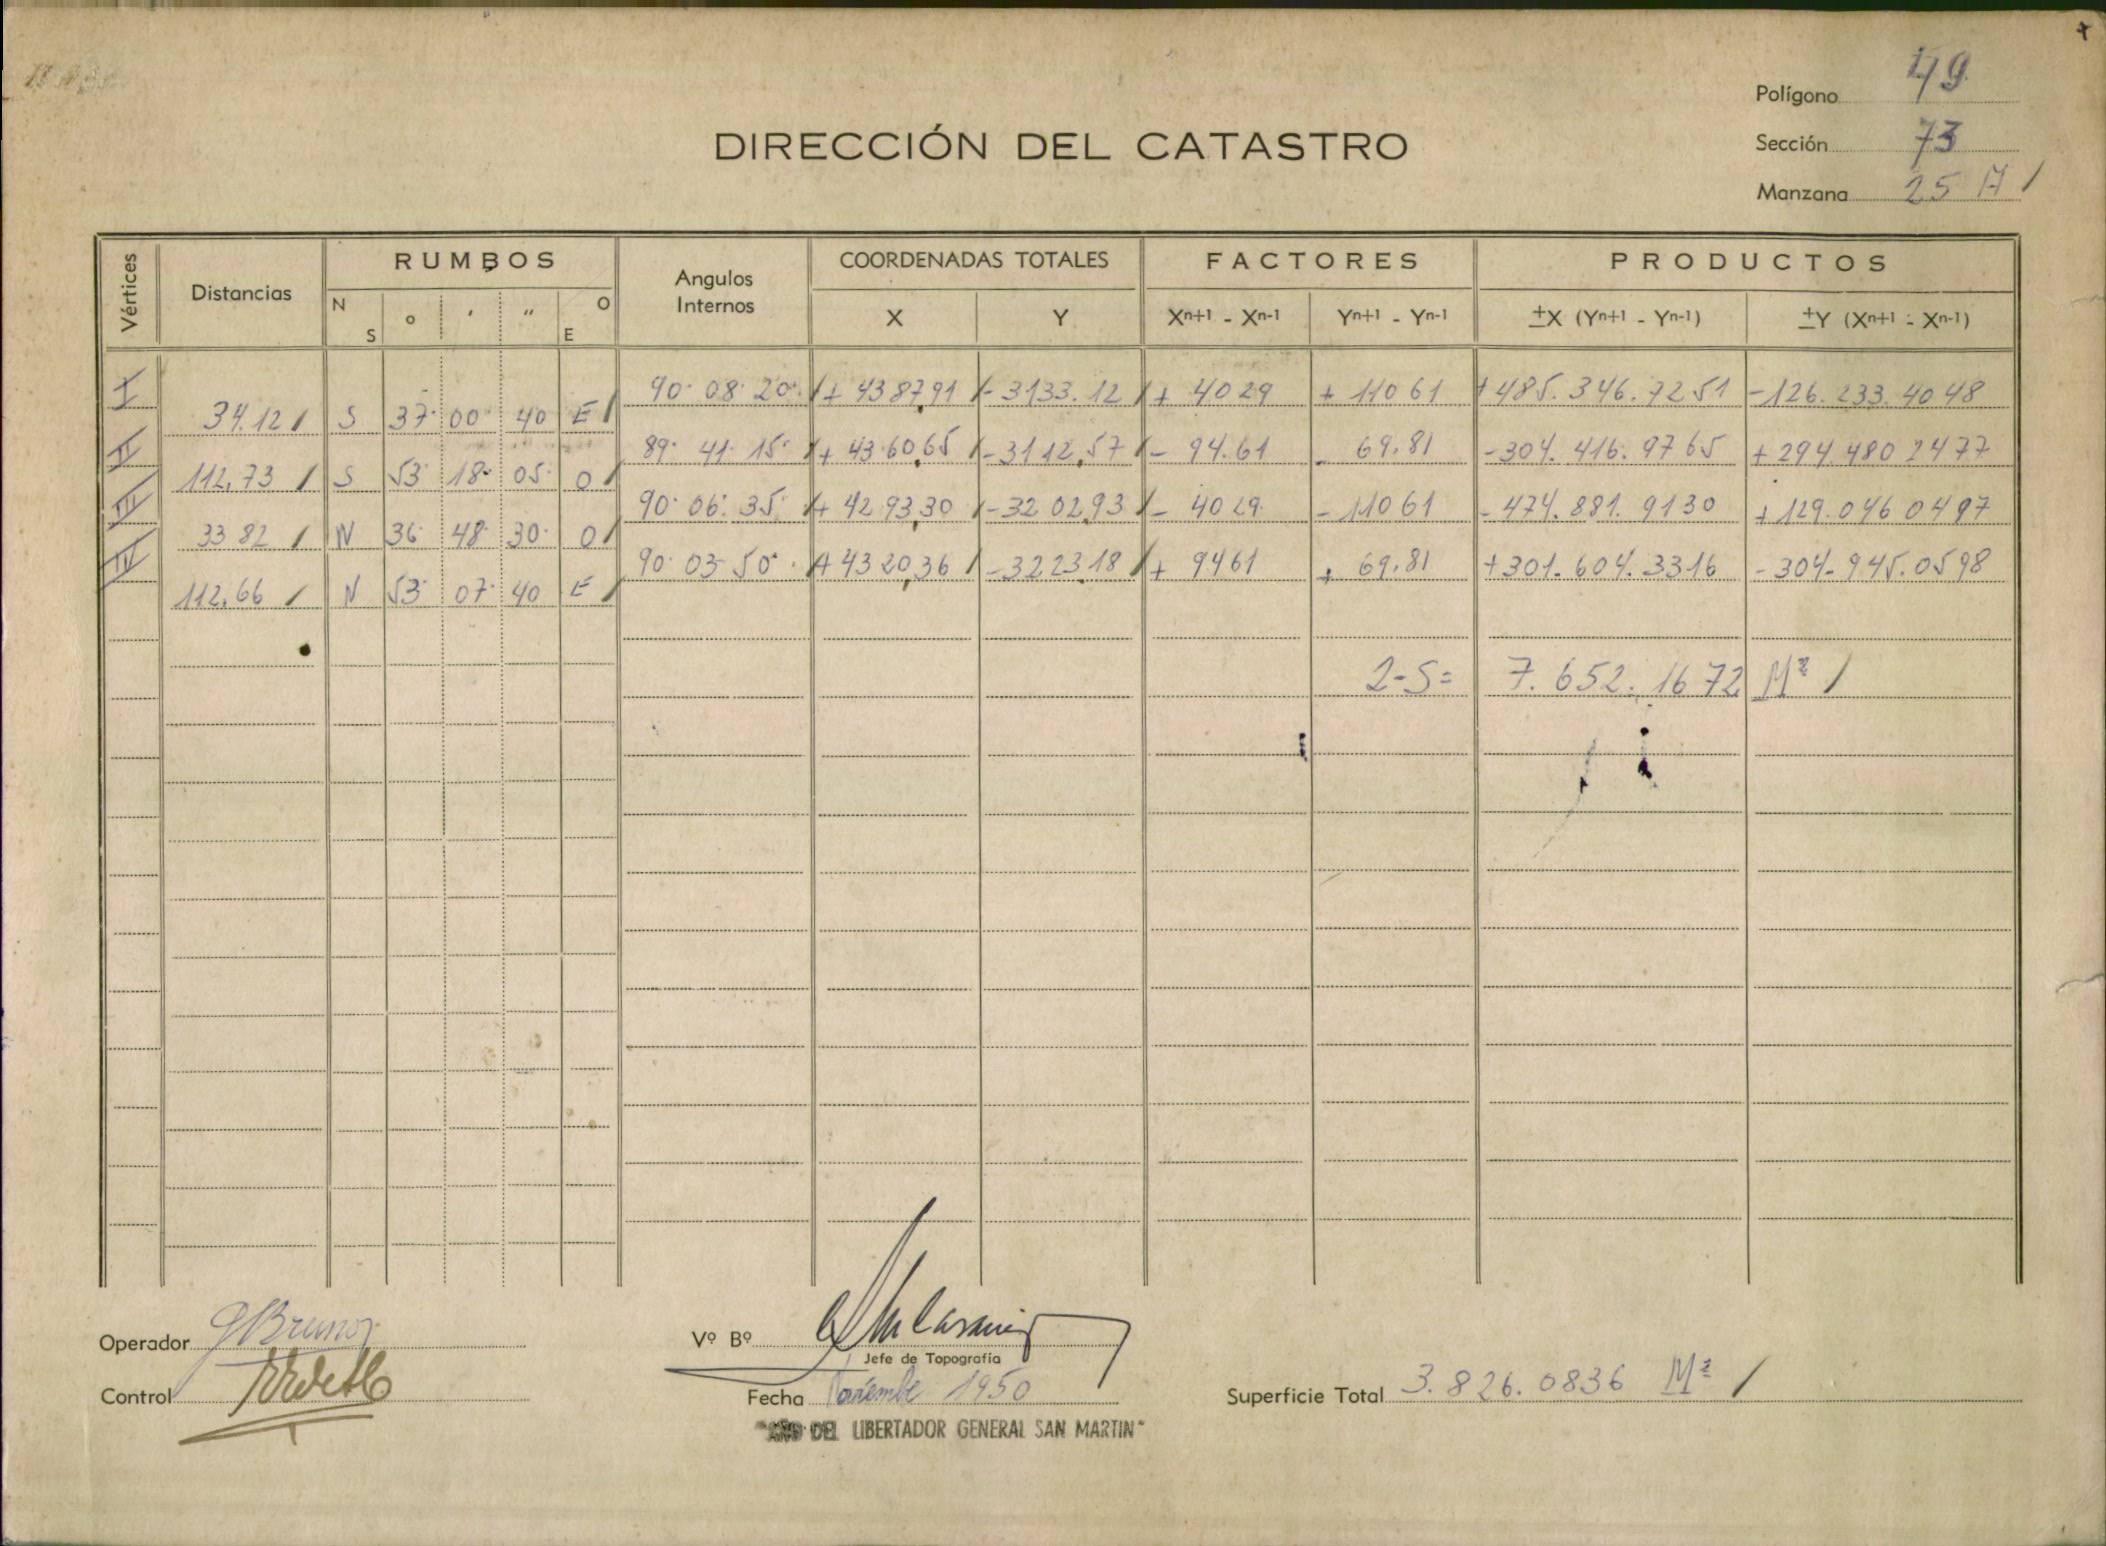 Polígono 49
DIRECCIÓN DEL CATASTRO
Sección 73
Manzana 25 A /
Vértices Distancias RUMBOS Angulos Internos COORDENADAS TOTALES FACTORES PRODUCTOS
N S ° ' " O E X Y Xn+1 - Xn-1 Yn+1 - Yn-1 ±X (Yn+1 - Yn-1) ±Y (Xn+1 - Xn-1)
I 90· 08· 20· /+ 4387,91 /- 3133.12 /+ 4029 + 11061 +485.346.7251 -126.233.4048
34.12 / S 37· 00· 40 E /
II 89· 41· 15· /+ 4360,65 /- 3112,57 /- 94.61 - 69.81 -304.416.9765 +294.480 2477
112,73 / S 53· 18· 05· O /
III 90· 06· 35· /+ 4293,30 /- 3202,93 /- 4029 - 11061 -474.881.9130 +129.046 0497
33 82 / N 36· 48· 30· O /
IV 90· 03 50· + 4320,36 /- 3223,18 /+ 9461 + 69.81 +301.604.3316 -304.945.0598
112.66 / N 53· 07· 40 E /
2-S= 7.652.1672 M² /
Operador GBruno
Vº Bº
Jefe de Topografía
Control
Fecha Noviembe 1950
Superficie Total 3.826.0836 M² /
"AÑO DEL LIBERTADOR GENERAL SAN MARTIN"